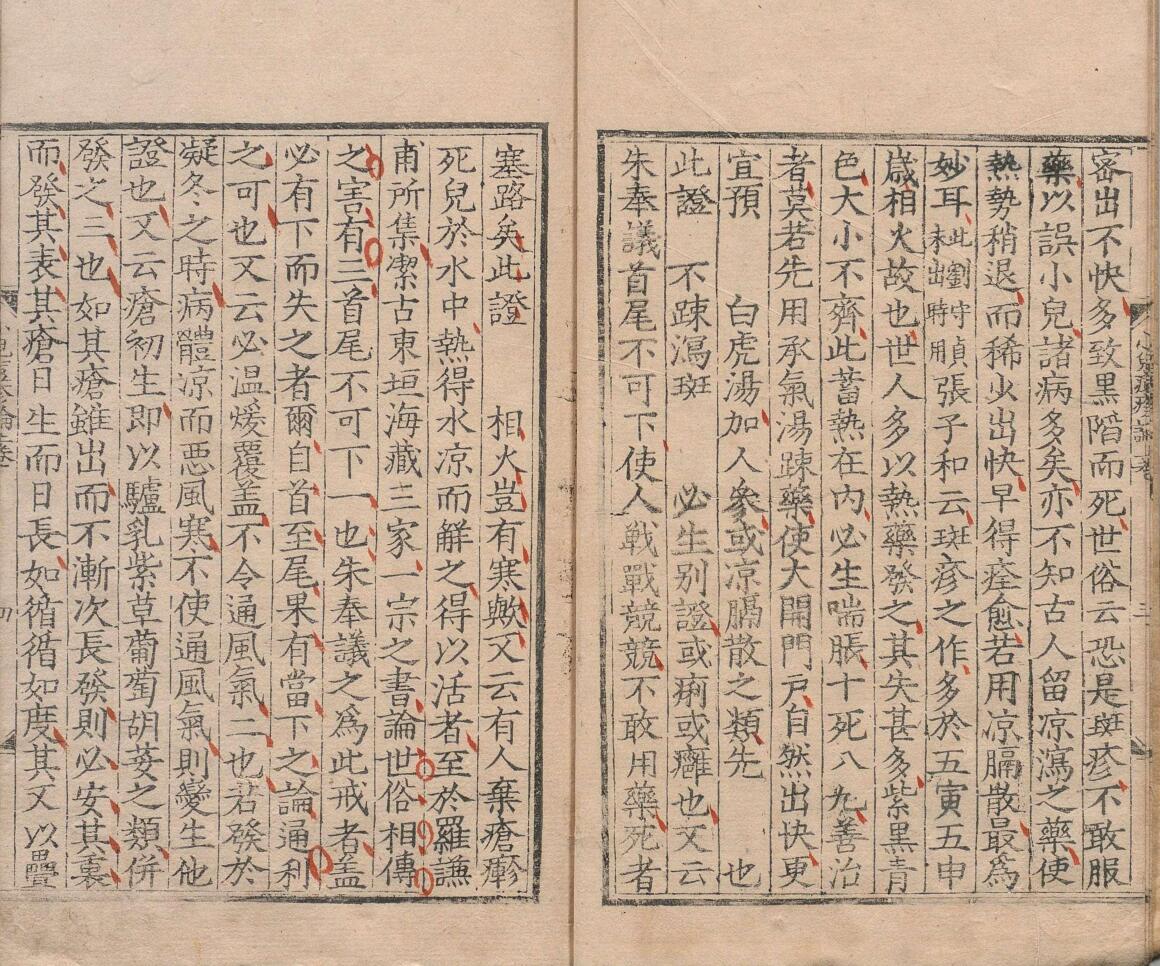 密出不快多致黑陷而死世俗云恐是斑疹不敢服
藥以誤小兒諸病多矣亦不知古人留凉瀉之藥使
熱勢稍退而稀少出快早得痊愈若用凉膈散最為
妙耳此劉守貞未出時用張子和云斑疹之作多於五寅五申
歲相火故也世人多以熱藥發之其失甚多紫黑青
色大小不齊此蓄熱在內必生喘脹十死八九善治
者莫若先用承氣湯踈藥使大開門戶自然出快更
宜預 白虎湯加人參或凉膈散之類先 也
此證 不踈瀉斑 必生别證或痢或癰也又云
朱奉議首尾不可下使人戰戰競競不敢用藥死者
塞路矣此證 相火豈有寒歟又云有人棄瘡疹
死兒於水中熱得水凉而解之得以活者至於羅謙
甫所集潔古東垣海藏三家一宗之書論世俗相傳
之害有三首尾不可下一也朱奉議之為此戒者盖
必有下而失之者爾自首至尾果有當下之論通利
之可也又云必温煖覆盖不令通風氣二也若發於
凝冬之時病體凉而悪風寒不使通風氣則變生他
證也又云瘡初生即以驢乳紫草葡萄胡荽之類併
發之三也如其瘡雖出而不漸次長發則必安其裏
而發其表其瘡日生而日長如循循如度其又以疊